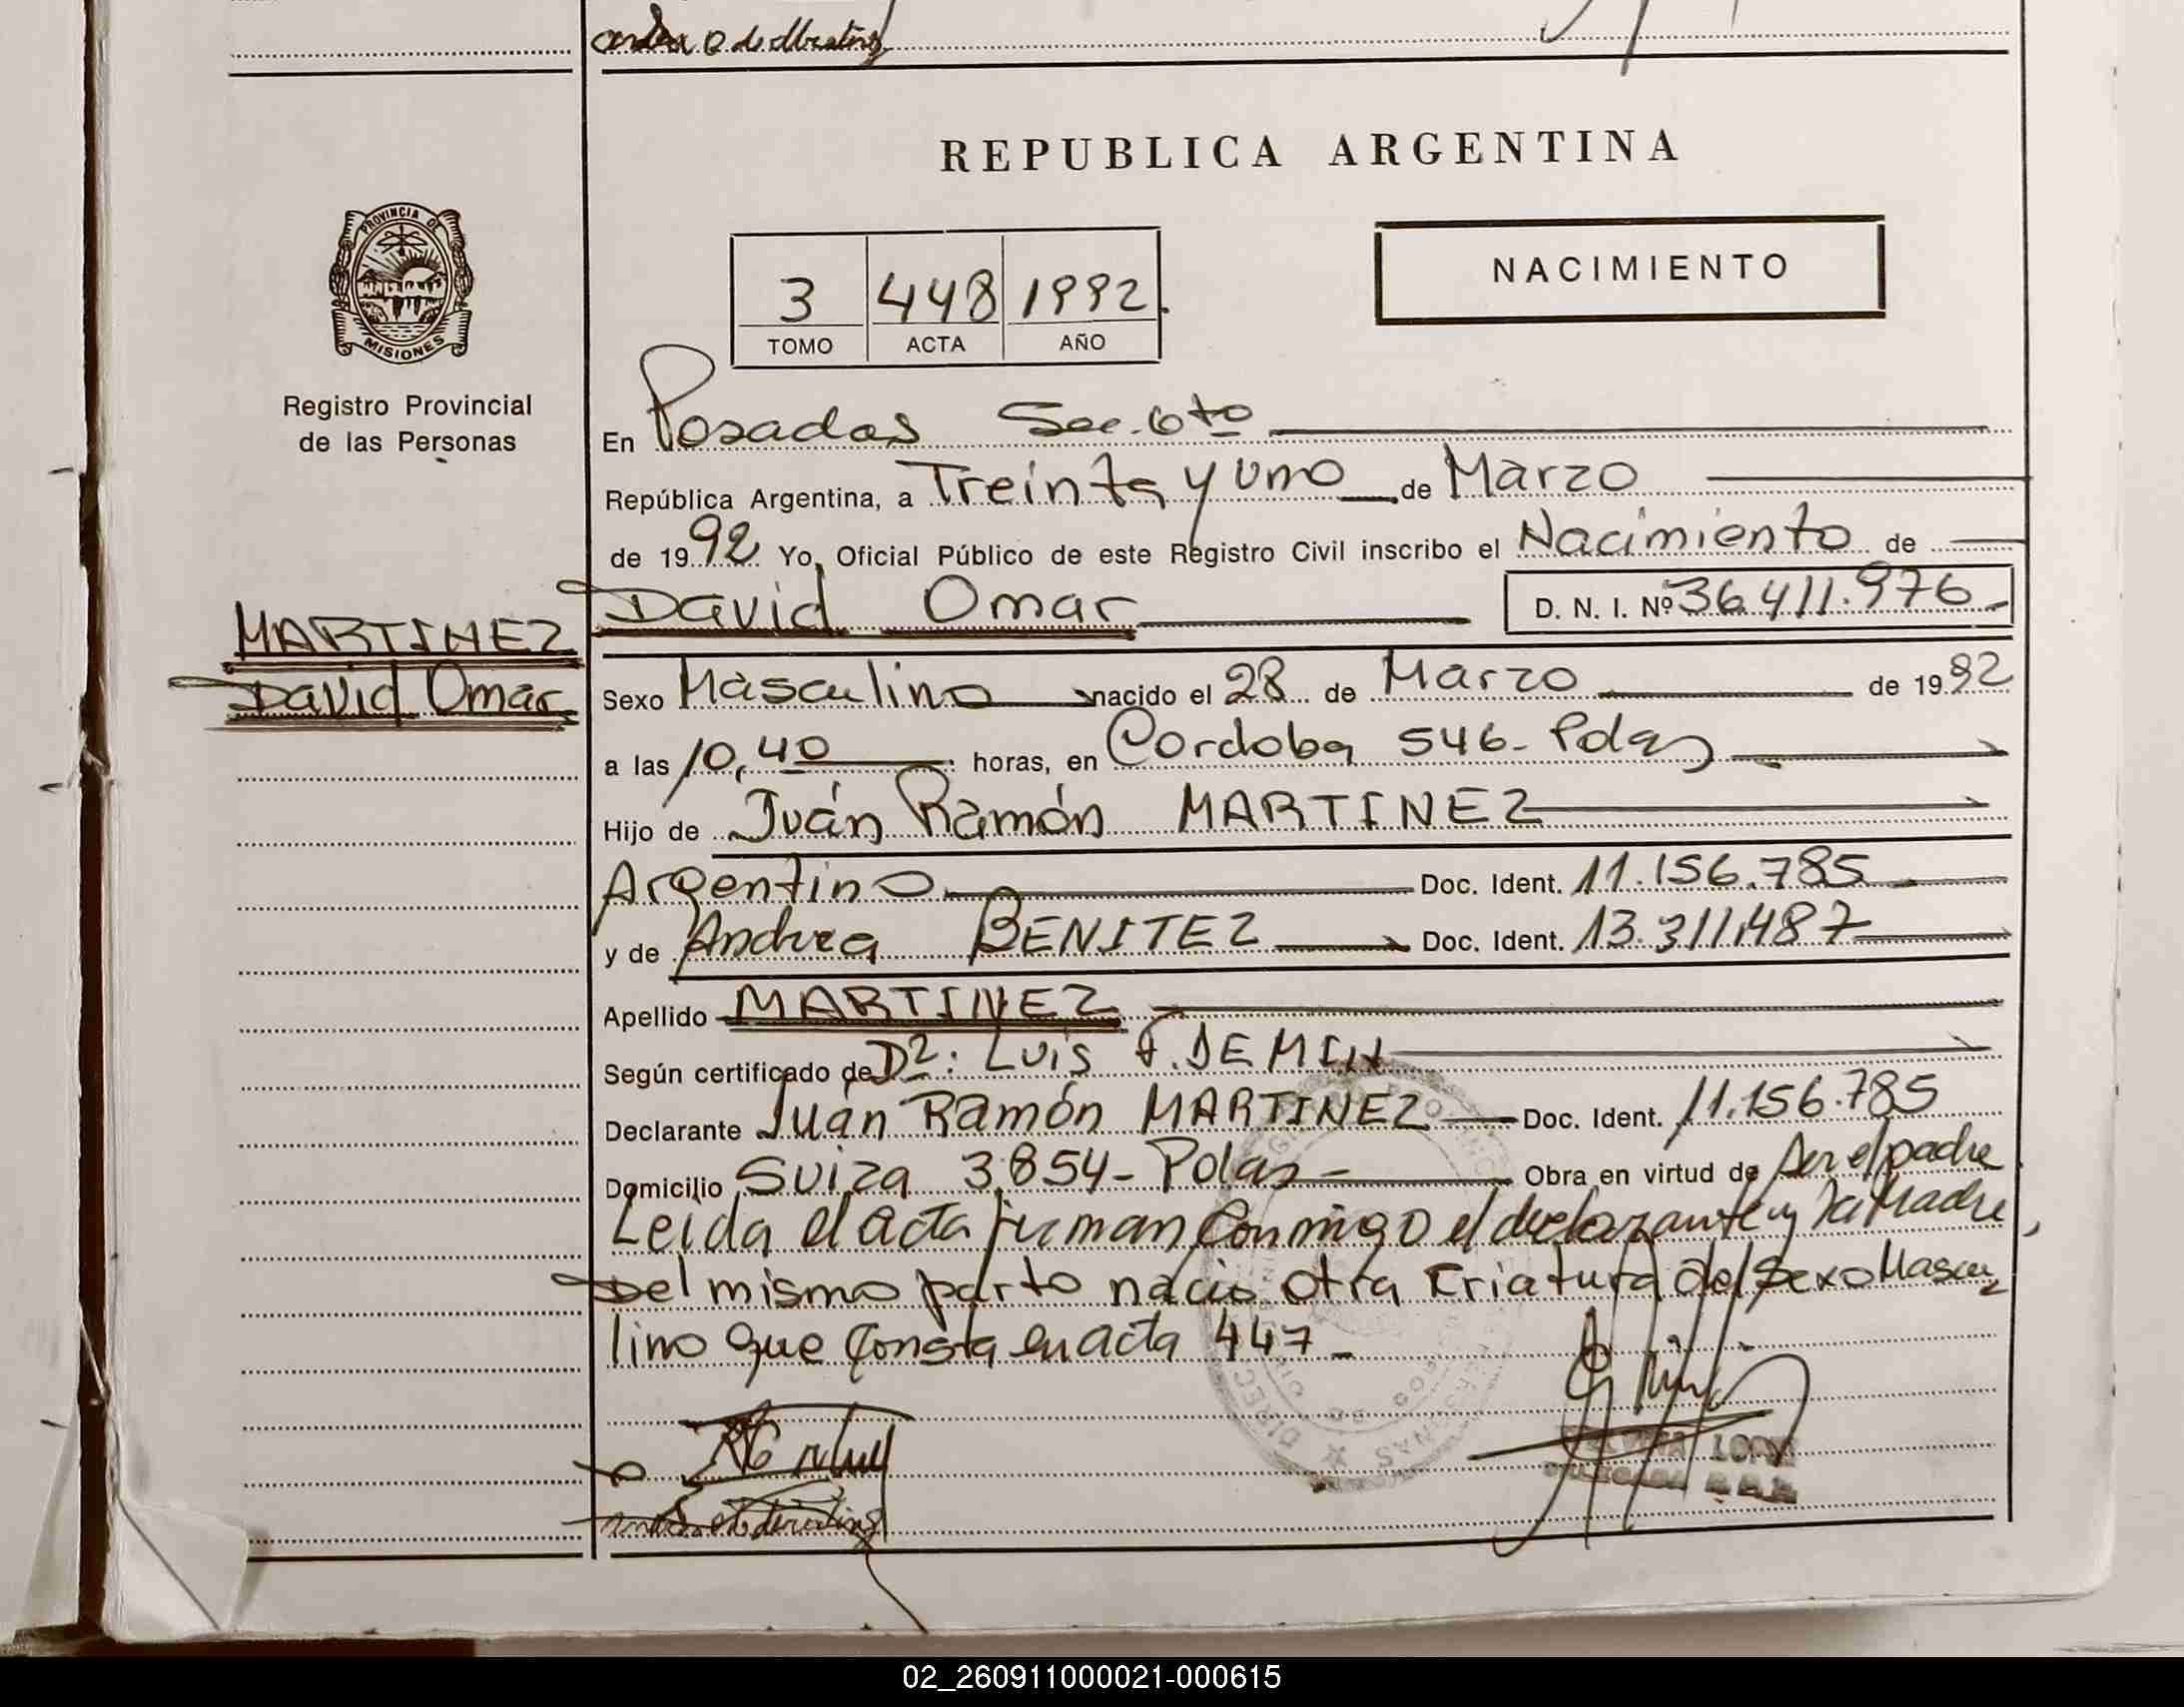 REPUBLICA ARGENTINA
PROVINCIA DE
MISIONES
Registro Provincial
de las Personas
3 448 1992
TOMO ACTA AÑO
NACIMIENTO
En Posadas Sec. 6to
República Argentina, a Treinta y uno de Marzo
de 1992 Yo, Oficial Público de este Registro Civil inscribo el Nacimiento de
David Omar D. N. I. Nº 36.411.976
MARTINEZ
David Omar
Sexo Masculino nacido el 28 de Marzo de 1992
a las 10,40 horas, en Cordoba 546- Pdas
Hijo de Juán Ramón MARTINEZ
Argentino Doc. Ident. 11.156.785
y de Andrea BENITEZ Doc. Ident. 13.311.487
Apellido MARTINEZ
Según certificado de Luis F.
Declarante Juán Ramón MARTINEZ Doc. Ident. 11.156.785
Domicilio Suiza 3.854- Pdas - Obra en virtud de ser el padre
Leida el acta firman conmigo el declarante y la Madre,
Del mismo parto nacio otra criatura del sexo Mascu
lino que consta en acta 447 -
02_260911000021-000615